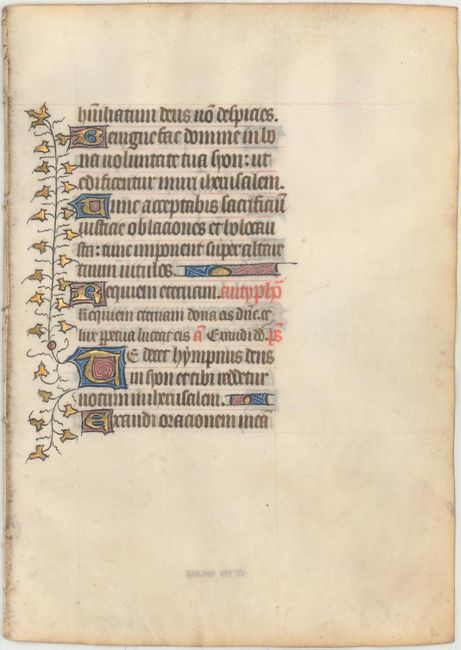 hūiliatum deus nō despicies.
Benigne fac domine in bo
na uoluntate tua syon: ut
edificentur muri iherusalem.
Tunc acceptabis sacrificiū
iusticie oblaciones et holocau
sta: tunc imponent super altare
tuum uitulos.
Requiem eternam.
Requiem eternam dona eis dn̄e. et
lux perpetua luceat eis a Exaudi do. ps
Te decet hympnus deus
in syon et tibi reddetur
uotum in iherusalem.
Exaudi orationem meā